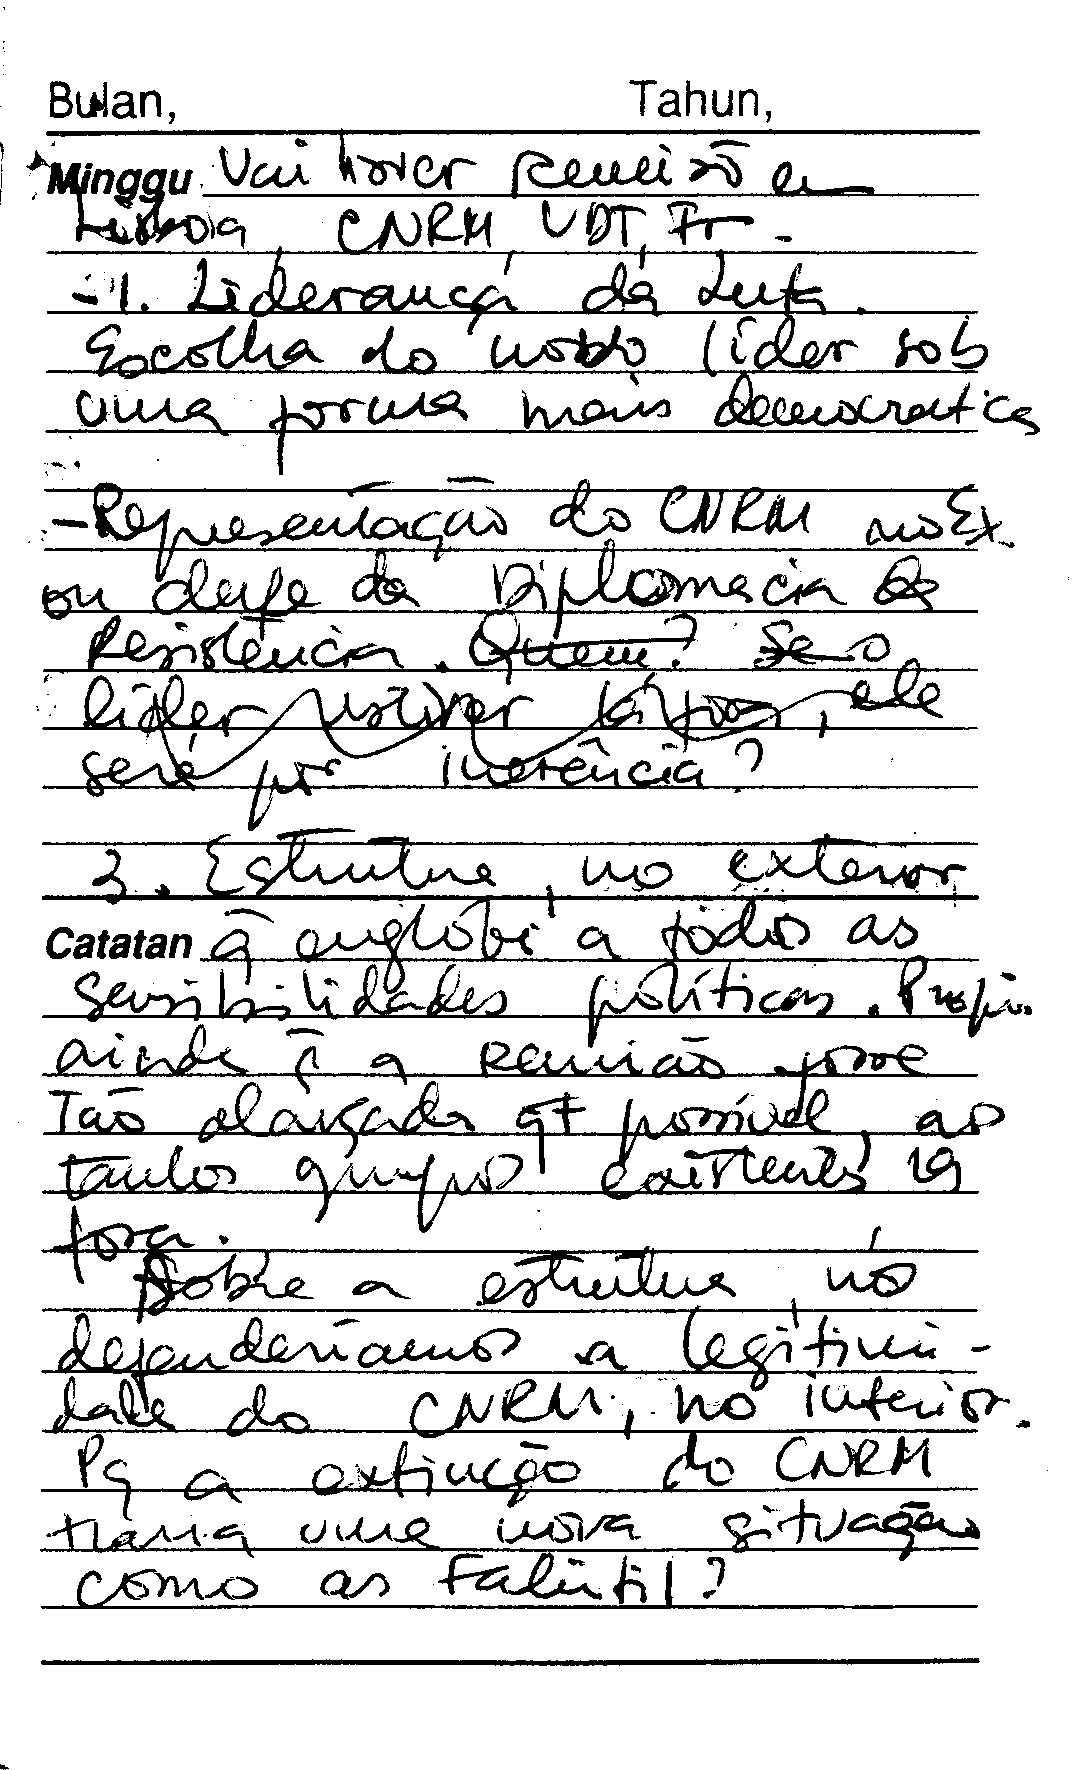 Bulan, Tahun,
Minggu Vai haver Reunião em
Lisboa, CNRM, UDT, Fr -
- 1. Liderança da Luta.
Escolha do nosso líder sob
uma forma mais democratica
- Representação do CNRM no Ex.
ou chefe da Diplomacia da
Resistência. Quem? Se o
líder estiver lá fora, ele
será por inerência?
3. Estrutura, no exterior,
Catatan q̃ englobe a todos as
sensibilidades políticas. Propus
ainda q̃ a reunião fosse
Tão alargada qt possível, aos
tantos grupos existentes lá
fora.
Sobre a estrutura, nós
defenderíamos a legitimi-
dade do CNRM, no interior.
Pq a extinção do CNRM
traria uma nova situação
como as Falintil?